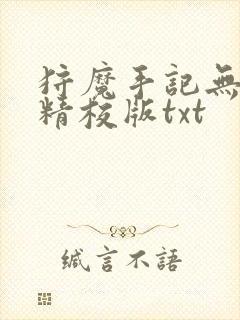 狩魔手記無
精校版txt
緘言不語